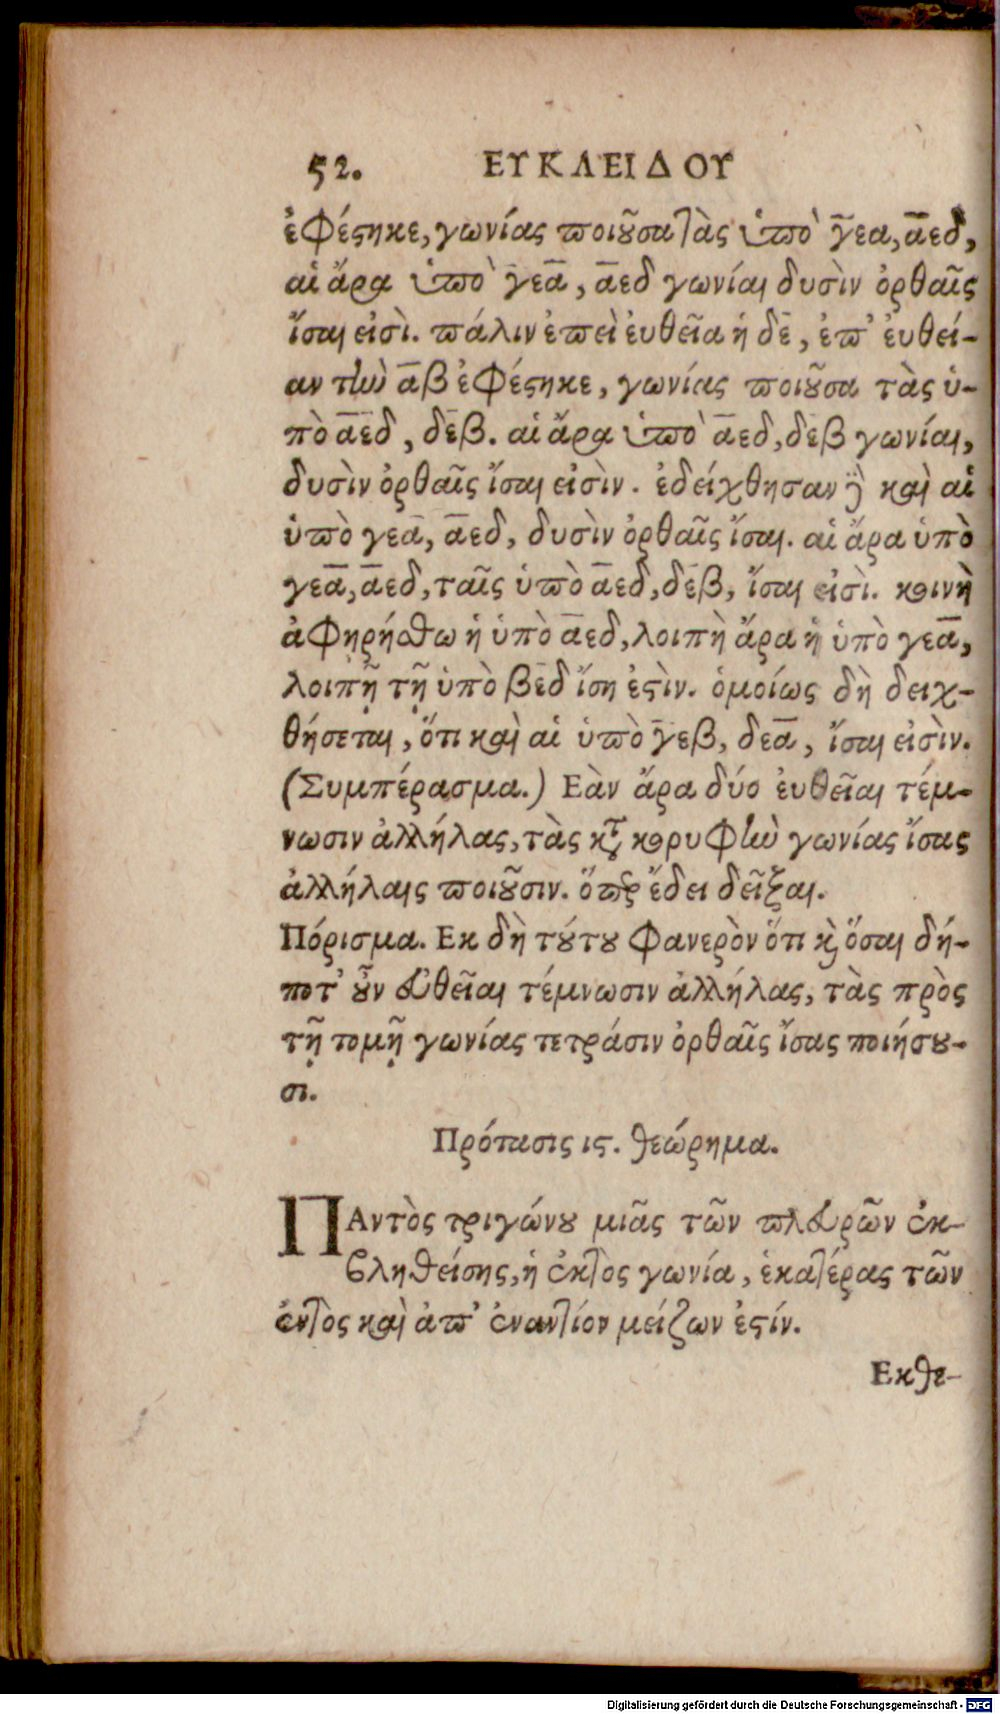 52. ΕΥΚΛΕΙΔΟΥ
ἐφέϛηκε, γωνίας ποιοῦσα τὰς ὑπὸ γεα, αεδ,
αἱ ἄρα ὑπὸ γεα, αεδ γωνίαι δυσὶν ὀρθαῖς
ἴσαι εἰσὶ. πάλιν ἐπεὶ ἐυθεῖα ἡ δε, ἐπ' ἐυθεί-
αν τὴν αβ ἐφέϛηκε, γωνίας ποιοῦσα τὰς ὑ-
πὸ αεδ, δεβ. αἱ ἄρα ὑπὸ αεδ, δεβ γωνίαι,
δυσὶν ὀρθαῖς ἴσαι εἰσὶν. ἐδείχθησαν δὲ καὶ αἱ
ὑπὸ γεα, αεδ, δυσὶν ὀρθαῖς ἴσαι. αἱ ἄρα ὑπὸ
γεα, αεδ, ταῖς ὑπὸ αεδ, δεβ, ἴσαι εἰσὶ. κοινὴ
ἀφηρήσθω ἡ ὑπὸ αεδ, λοιπὴ ἄρα ἡ ὑπὸ γεα,
λοιπῇ τῇ ὑπὸ βεδ ἴση ἐϛὶν. ὁμοίως δὴ δειχ-
θήσεται, ὅτι καὶ αἱ ὑπὸ γεβ, δεα, ἴσαι εἰσὶν.
(Συμπέρασμα.) Εὰν ἄρα δύο ἐυθεῖαι τέμ-
νωσιν ἀλλήλας, τὰς κτ κορυφὴν γωνίας ἴσας
ἀλλήλαις ποιοῦσιν. ὅπερ ἔδει δεῖξαι.
Πόρισμα. Εκ δὴ τούτου φανερὸν ὅτι καὶ ὅσαι δή-
ποτ' οὖν ἐυθεῖαι τέμνωσιν ἀλλήλας, τὰς πρὸς
τῇ τομῇ γωνίας τετράσιν ὀρθαῖς ἴσας ποιήσου-
σι.
Πρότασις ιϛ. θεώρημα.
ΠΑντὸς τριγώνου μιᾶς τῶν πλευρῶν ἐκ-
βληθείσης, ἡ ἐκτὸς γωνία, ἑκατέρας τῶν
ἐντὸς καὶ ἀπ' ἐναντίον μείζων ἐϛίν.
Εκθε-
Digitalisierung gefördert durch die Deutsche Forschungsgemeinschaft - DFG